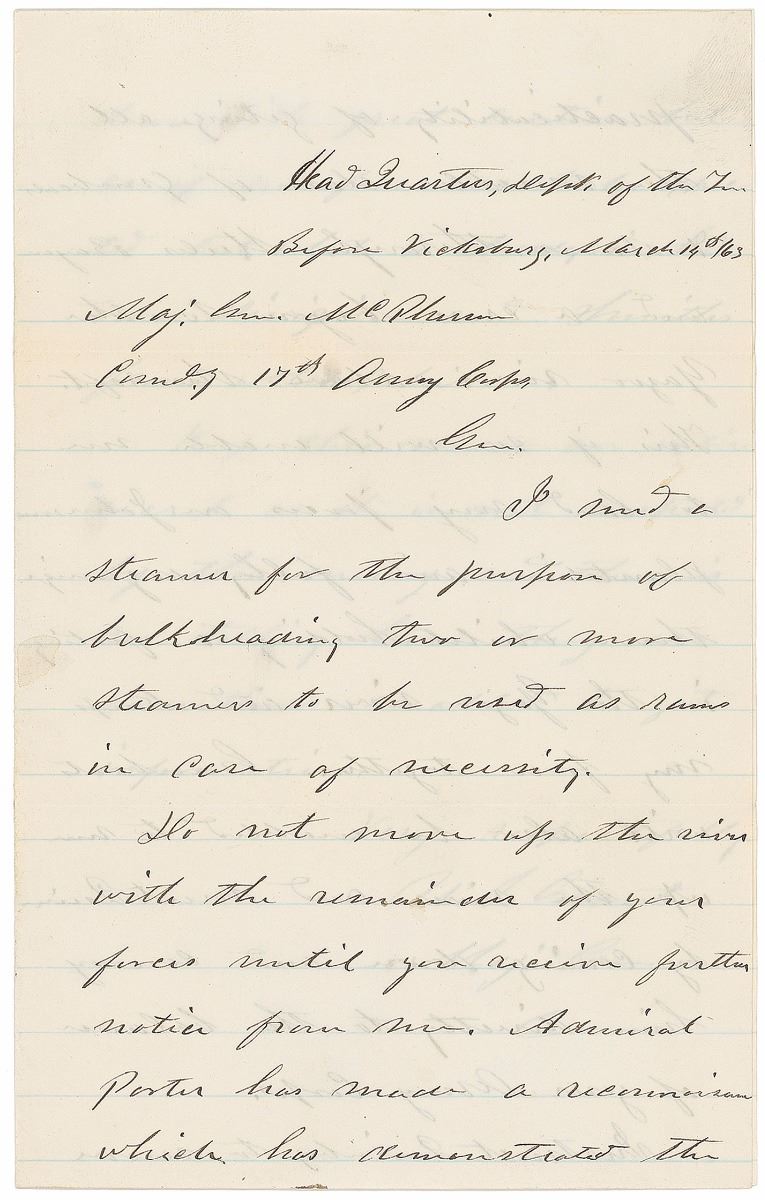 Head Quarters, Dept. of the Ten
Before Vicksburg, March 14th /63
Maj. Gen. McPherson
Comd.g 17th Army Corps,
Gen.
I send a
steamer for the purpose of
bulkheading two or more
steamers to be used as rams
in case of necessity.
Do not move up the river
with the remainder of your
forces until you receive further
notice from me. Admiral
Porter has made a reconnoisance
which has demonstrated the